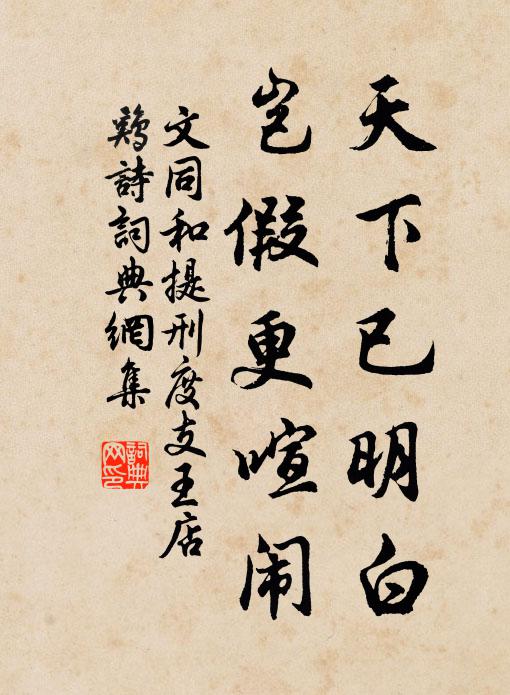 天下已明白
岂假更喧闹
文同和提刑度支王店
鸡詩詞典網集
詞典网印